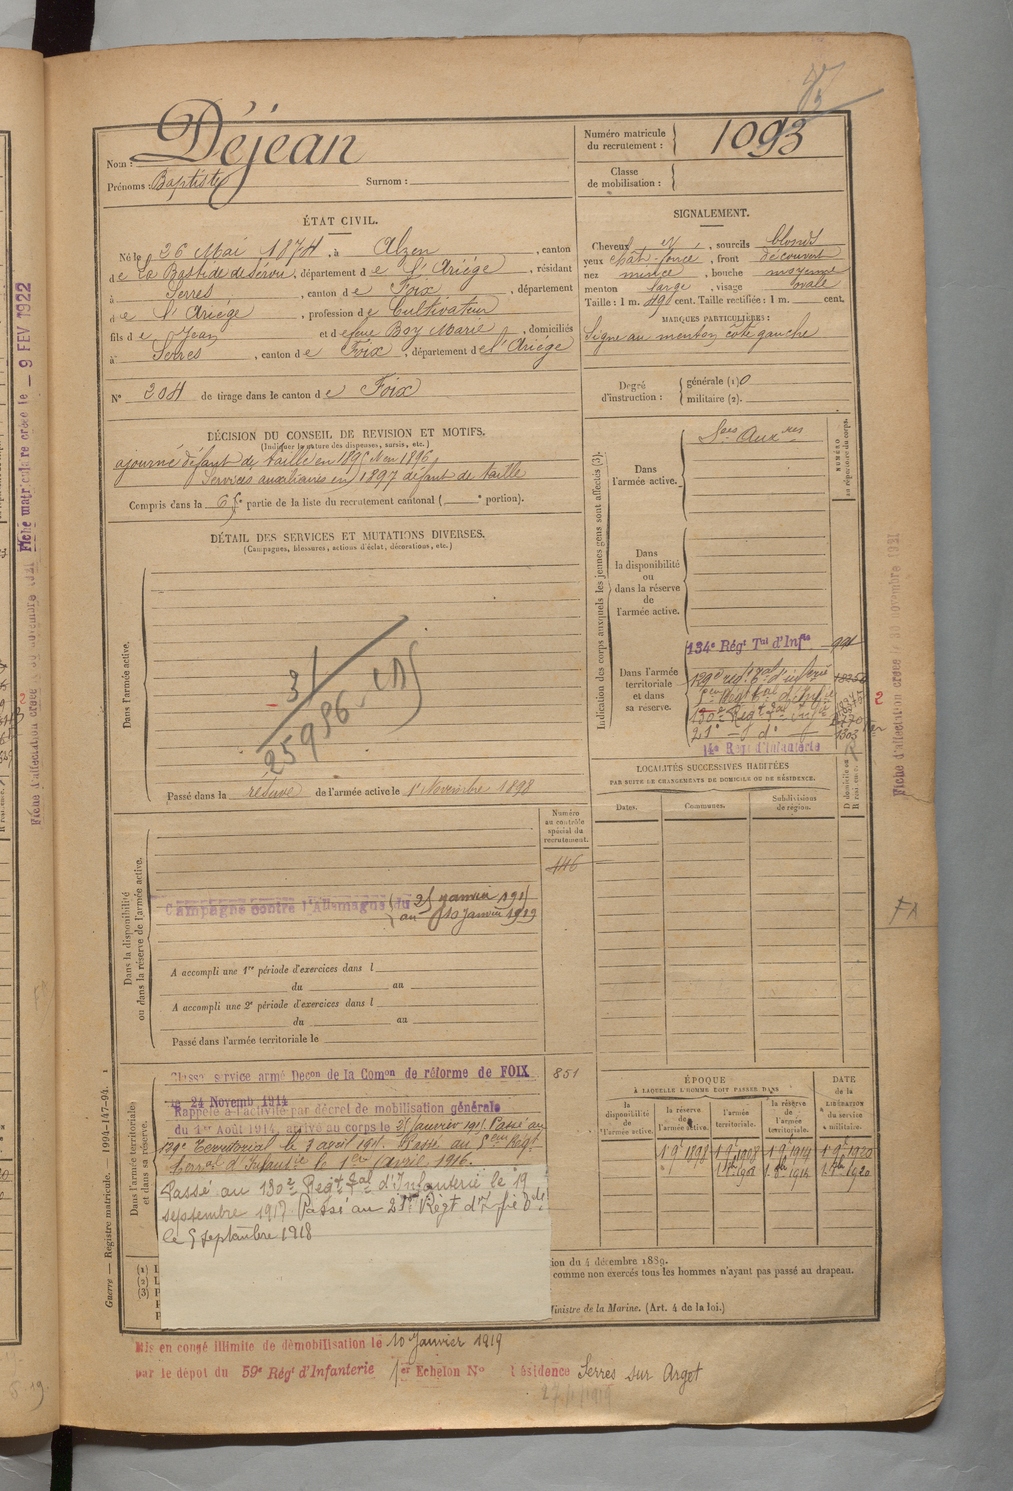 Déjean
Nom :
Prénoms : Baptiste Surnom :
Numéro matricule du recrutement : 1093
Classe de mobilisation :
ÉTAT CIVIL.
Né le 26 Mai 1874, à Alzen, canton
de La Bastide de Sérou, département de l'Ariège, résidant
à Serres, canton de Foix, département
de l'Ariège, profession de Cultivateur
fils de Jean et de feue Boy Marie, domiciliés
à Serres, canton de Foix, département de l'Ariège
N° 204 de tirage dans le canton de Foix
SIGNALEMENT.
Cheveux, sourcils blonds
yeux chât. foncé, front découvert
nez mince, bouche moyenne
menton large, visage ovale
Taille : 1 m. cent. Taille rectifiée : 1 m. cent.
MARQUES PARTICULIÈRES :
Signe au menton côté gauche
Degré d'instruction : générale (1) 0
militaire (2).
DÉCISION DU CONSEIL DE REVISION ET MOTIFS.
(Indiquer la nature des dispenses, sursis, etc.)
ajourné défaut de taille en 1895 & en 1896,
Services auxiliaires en 1897 défaut de taille
Compris dans la 6e partie de la liste du recrutement cantonal ( e portion).
DÉTAIL DES SERVICES ET MUTATIONS DIVERSES.
(Campagnes, blessures, actions d'éclat, décorations, etc.)
Dans l'armée active.
31
25986
Passé dans la réserve de l'armée active le 1er Novembre 1898
Indication des corps auxquels les jeunes gens sont affectés (3).
Dans l'armée active.
Sces Auxres
NUMÉRO au répertoire du corps.
Dans la disponibilité ou dans la réserve de l'armée active.
Dans l'armée territoriale et dans sa réserve.
134e Régt Tal d'Infie
129e régt Tal d'infie
5em Régt Tal d'Infie
130e Régt Tal Infie
21e
14e Régt d'Infanterie
2
LOCALITÉS SUCCESSIVES HABITÉES
PAR SUITE DE CHANGEMENTS DE DOMICILE OU DE RÉSIDENCE.
Dates. Communes. Subdivisions de région. D domicile ou R résidence.
Numéro au contrôle spécial du recrutement.
446
Dans la disponibilité ou dans la réserve de l'armée active.
Campagne contre l'Allemagne du 25 janvier 1915
au 10 Janvier 1919
A accompli une 1re période d'exercices dans l
du au
A accompli une 2e période d'exercices dans l
du au
Passé dans l'armée territoriale le
Dans l'armée territoriale et dans sa réserve.
851
Classé service armé Décon de la Comon de réforme de FOIX
le 24 Novemb 1914
Rappelé à l'activité par décret de mobilisation générale
du 1er Août 1914, arrivé au corps le 25 janvier 1915. Passé au
129e Territorial le 3 avril 1915. Passé au 5em Régt
Terral d'Infantie le 1er avril 1916.
Passé au 130e Régt Tal d'Infanterie le 19
septembre 1917 Passé au 21e Régt d'Ifie
le 5 septembre 1918
ÉPOQUE
À LAQUELLE L'HOMME DOIT PASSER DANS
la disponibilité de l'armée active. la réserve de l'armée active. l'armée territoriale. la réserve de l'armée territoriale.
DATE de la LIBÉRATION du service militaire.
ion du 4 décembre 1889.
comme non exercés tous les hommes n'ayant pas passé au drapeau.
Ministre de la Marine. (Art. 4 de la loi.)
Guerre — Registre matricule. — 1994-147-94.
Mis en congé illimité de démobilisation le 10 Janvier 1919
par le dépôt du 59e Régt d'Infanterie 1er Echelon N° Résidence Serres sur Arget
27/1/1919
FA
Fiche matriculaire créée le — 9 FEV 1922
Fiche d'affectation créée le 30 novembre 1921
Fiche d'affectation créée le 30 novembre 1921